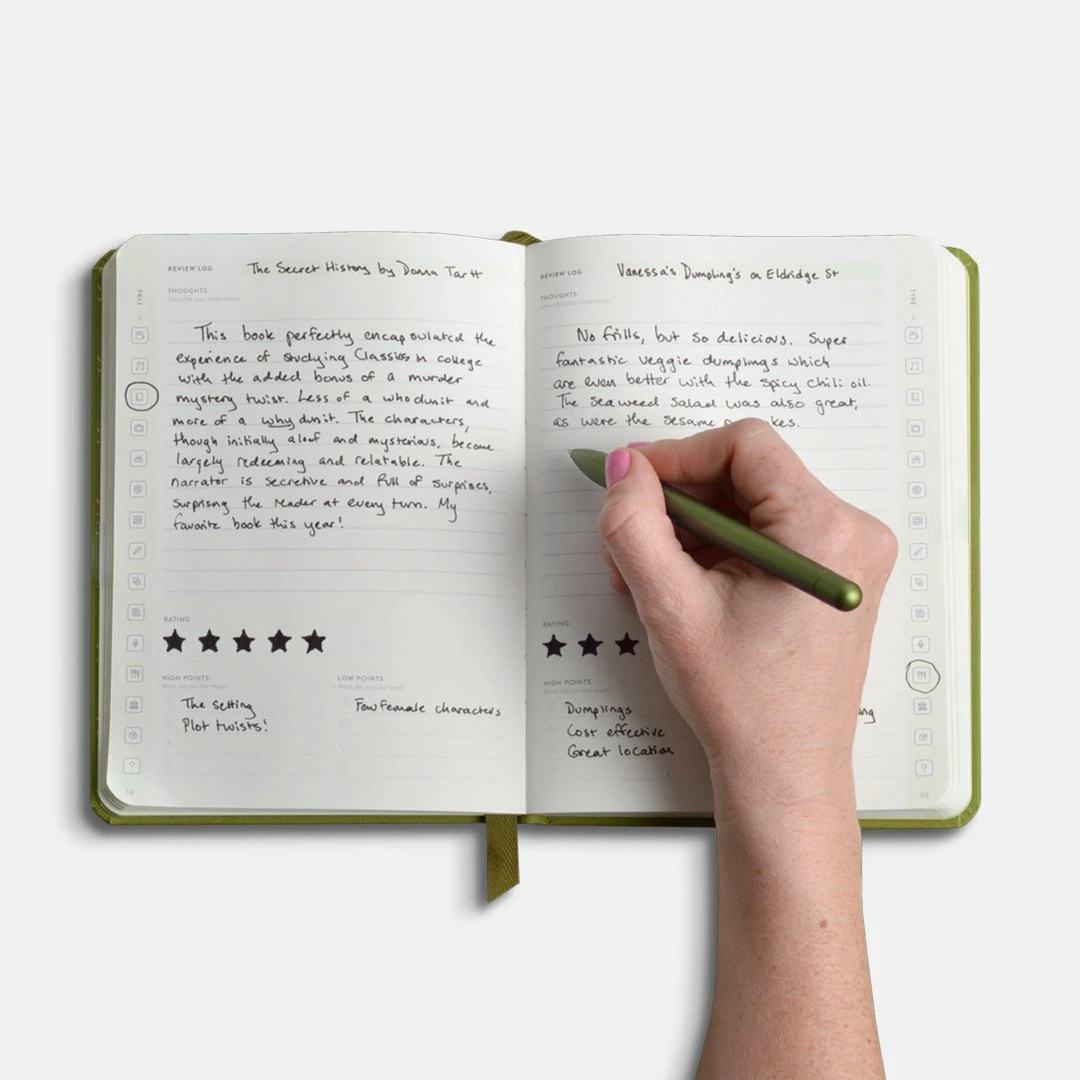 REVIEW LOG The Secret History by Donna Tartt
THOUGHTS
Describe your experience.
TYPE
This book perfectly encapsulated the
experience of studying Classics in college
with the added bonus of a murder
mystery twist. Less of a whodunit and
more of a whydunit. The characters,
though initially aloof and mysterious, become
largely redeeming and relatable. The
narrator is secretive and full of surprises,
surprising the reader at every turn. My
favorite book this year!
RATING
HIGH POINTS
What did you like most?
The setting
Plot twists!
LOW POINTS
What did you like least?
Few female characters
?
58
REVIEW LOG Vanessa's Dumpling's on Eldridge St
THOUGHTS
Describe your experience.
TYPE
No frills, but so delicious. Super
fantastic veggie dumplings which
are even better with the spicy chili oil.
The seaweed salad was also great,
as were the sesame
RATING
HIGH POINTS
What did you like most?
Dumplings
Cost effective
Great location
?
59